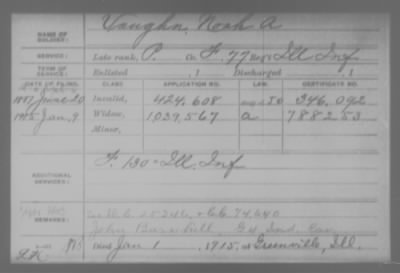 NAME OF SOLDIER: Vaughn, Noah A
SERVICE: Late rank, P. Co. F, 77 Reg't Ill Inf
TERM OF SERVICE: Enlisted , 1 Discharged , 1
DATE OF FILING. CLASS APPLICATION NO. LAW. CERTIFICATE NO.
1887 June 20 Invalid, 424,608 346,092
1915 Jan. 9 Widow, 1039,567 a 788253
Minor,
ADDITIONAL SERVICES: F. 130" Ill. Inf
C.C. 74,640
John
Died Jan 1, 1915, at Greenville, Ill.